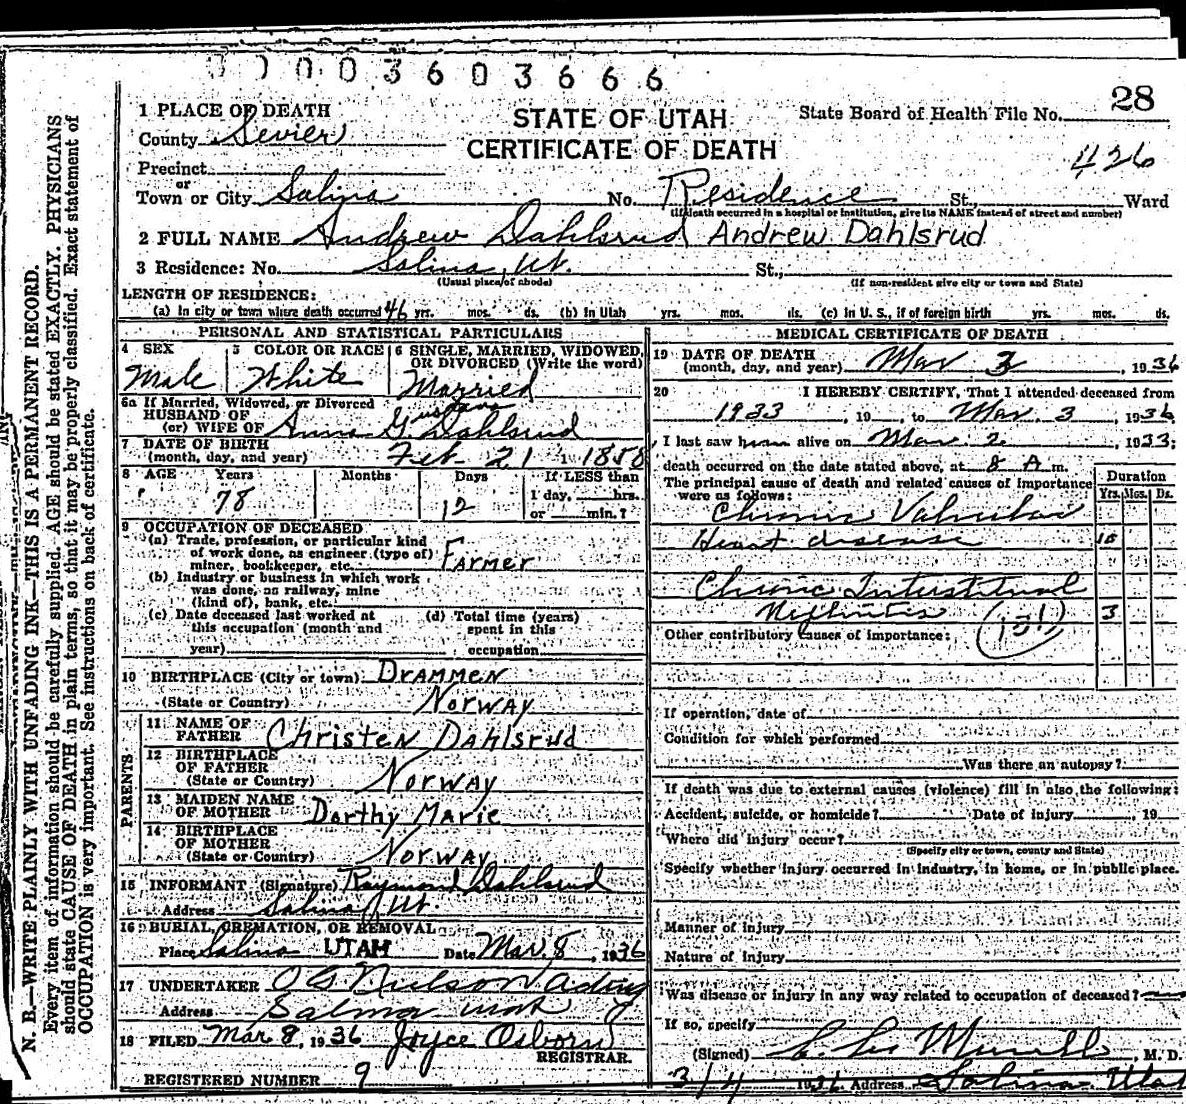 0 0 0 0 3 6 0 3 6 6 6
28
1 PLACE OF DEATH
STATE OF UTAH
State Board of Health File No.
County Sevier
CERTIFICATE OF DEATH
426
Precinct
or
Town or City Salina No. Residence St., Ward
(If death occurred in a hospital or institution, give its NAME instead of street and number)
2 FULL NAME Andrew Dahlsrud Andrew Dahlsrud
3 Residence: No. Salina, Ut. St.,
(Usual place of abode) (If non-resident give city or town and State)
LENGTH OF RESIDENCE:
(a) In city or town where death occurred 46 yrs. mos. ds. (b) In Utah yrs. mos. ds. (c) In U. S., if of foreign birth yrs. mos. ds.
PERSONAL AND STATISTICAL PARTICULARS
4 SEX 5 COLOR OR RACE 6 SINGLE, MARRIED, WIDOWED,
OR DIVORCED (Write the word)
Male White Married
6a If Married, Widowed, or Divorced
HUSBAND OF
(or) WIFE OF Anna G Dahlsrud
7 DATE OF BIRTH
(month, day, and year) Feb 21 1858
8 AGE Years Months Days If LESS than
78 12 1 day, hrs.
or min.?
9 OCCUPATION OF DECEASED
(a) Trade, profession, or particular kind
of work done, as engineer (type of)
miner, bookkeeper, etc. Farmer
(b) Industry or business in which work
was done, as railway, mine
(kind of), bank, etc.
(c) Date deceased last worked at (d) Total time (years)
this occupation (month and spent in this
year) occupation
10 BIRTHPLACE (City or town) Drammen
(State or Country) Norway
PARENTS
11 NAME OF
FATHER Christen Dahlsrud
12 BIRTHPLACE
OF FATHER
(State or Country) Norway
13 MAIDEN NAME
OF MOTHER Dorthy Marie
14 BIRTHPLACE
OF MOTHER
(State or Country) Norway
15 INFORMANT (Signature) Raymond Dahlsrud
Address Salina Ut.
16 BURIAL, CREMATION, OR REMOVAL
Place Salina UTAH Date Mar. 8, 1936
17 UNDERTAKER
Address Salina Utah
18 FILED Mar 8, 1936 Joyce Osborn
REGISTRAR.
REGISTERED NUMBER 9
MEDICAL CERTIFICATE OF DEATH
19 DATE OF DEATH
(month, day, and year) Mar 3, 1936
20 I HEREBY CERTIFY, That I attended deceased from
1933, 19 to Mar. 3, 1936
I last saw him alive on Mar. 2, 1933;
death occurred on the date stated above, at 8 A m.
The principal cause of death and related causes of importance
were as follows:
Duration
Yrs. Mos. Ds.
Chronic Valvular
Heart disease 10
Chronic Interstitial
Nephritis 3
(131)
Other contributory causes of importance:
If operation, date of
Condition for which performed
Was there an autopsy?
If death was due to external causes (violence) fill in also the following:
Accident, suicide, or homicide? Date of injury, 19
Where did injury occur?
(Specify city or town, county and State)
Specify whether injury occurred in industry, in home, or in public place.
Manner of injury
Nature of injury
Was disease or injury in any way related to occupation of deceased?
If so, specify
(Signed) M. D.
3/4 1936 Address Salina Utah
N. B.—WRITE PLAINLY WITH UNFADING INK—THIS IS A PERMANENT RECORD.
Every item of information should be carefully supplied. AGE should be stated EXACTLY. PHYSICIANS
should state CAUSE OF DEATH in plain terms, so that it may be properly classified. Exact statement of
OCCUPATION is very important. See instructions on back of certificate.